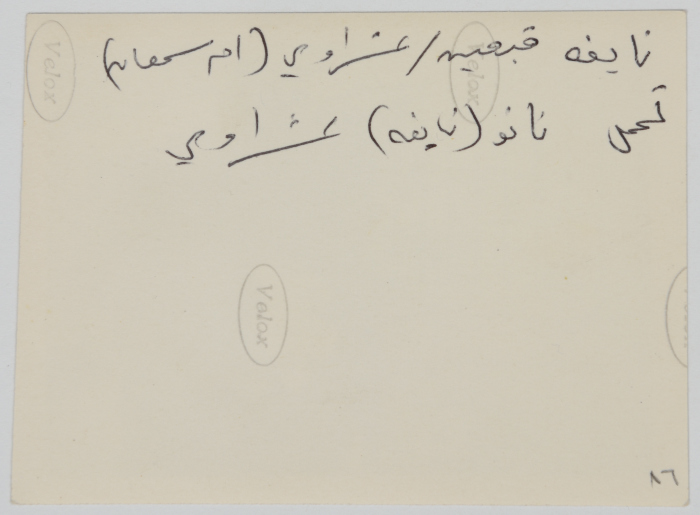 نايفه قبعين/عشراوي (ام سمعان)
تحمل نانو (نايفه) عشراوي
Velox
Velox
Velox
٨٦